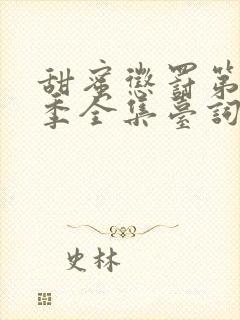 甜蜜懲罰第
季全集臺詞
史林